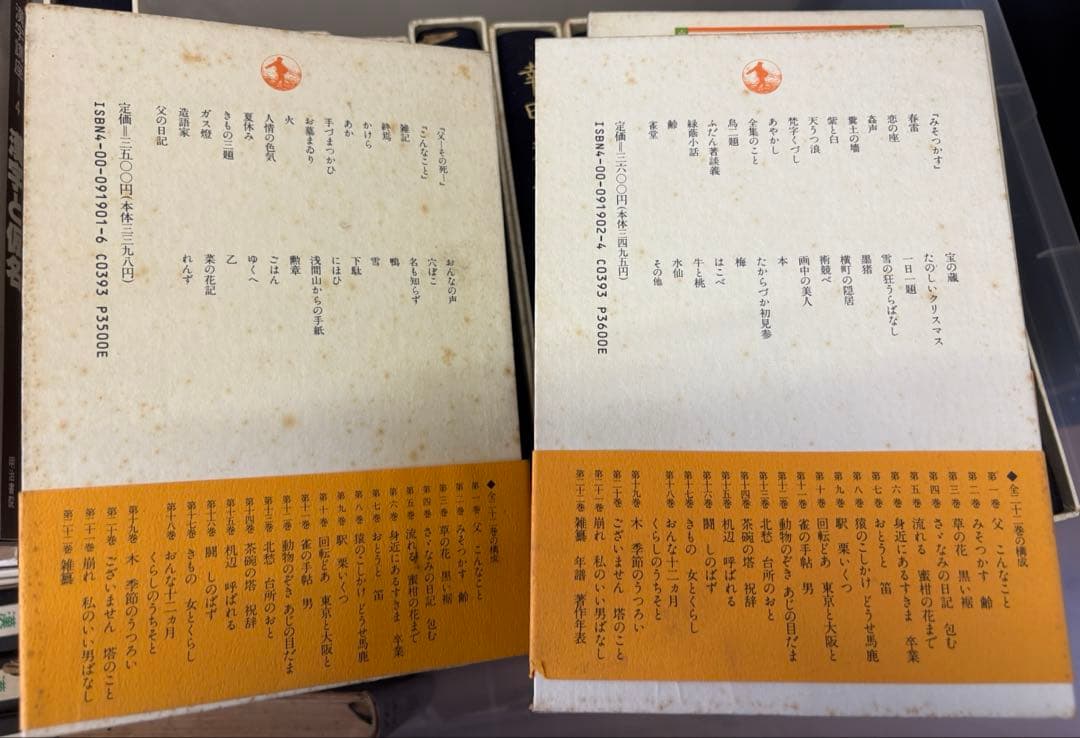 『父―その死―』
『こんなこと』
雑記
終焉
かけら
あか
手づまつかひ
お墓まゐり
火
人情の色気
夏休み
きもの三題
ガス燈
造語家
父の日記
おんなの声
穴ぼこ
名も知らず
鴨
雪
下駄
にほひ
浅間山からの手紙
勲章
ごはん
ゆくへ
乙
菜の花記
れんず
定価=三五〇〇円(本体三三九八円)
ISBN4-00-091901-6 C0393 P3500E
◆全二十二巻の構成
第一巻 父 こんなこと
第二巻 みそつかす 齢
第三巻 草の花 黒い裾
第四巻 さゞなみの日記 包む
第五巻 流れる 蜜柑の花まで
第六巻 身近にあるすきま 卒業
第七巻 おとうと 笛
第八巻 猿のこしかけ どうせ馬鹿
第九巻 駅 栗いくつ
第十巻 回転どあ 東京と大阪と
第十一巻 雀の手帖 男
第十二巻 動物のぞき あじの目だま
第十三巻 北愁 台所のおと
第十四巻 茶碗の塔 祝辞
第十五巻 机辺 呼ばれる
第十六巻 闘 しのばず
第十七巻 きもの 女とくらし
第十八巻 おんな十二ヵ月
くらしのうちそと
第十九巻 木 季節のうつろい
第二十巻 ございません 塔のこと
第二十一巻 崩れ 私のいい男ばなし
第二十二巻 雑纂
『みそつかす』
春雷
恋の座
姦声
糞土の墻
紫と白
天うつ浪
梵字くづし
あやかし
全集のこと
鳥二題
ふだん著談義
緑蔭小話
齢
雀堂
宝の蔵
たのしいクリスマス
一日一題
雪の狂うらばなし
墨猪
横町の隠居
術競べ
画中の美人
本
たからづか初見参
梅
はこべ
牛と桃
水仙
その他
定価=三六〇〇円(本体三四九五円)
ISBN4-00-091902-4 C0393 P3600E
◆全二十二巻の構成
第一巻 父 こんなこと
第二巻 みそつかす 齢
第三巻 草の花 黒い裾
第四巻 さゞなみの日記 包む
第五巻 流れる 蜜柑の花まで
第六巻 身近にあるすきま 卒業
第七巻 おとうと 笛
第八巻 猿のこしかけ どうせ馬鹿
第九巻 駅 栗いくつ
第十巻 回転どあ 東京と大阪と
第十一巻 雀の手帖 男
第十二巻 動物のぞき あじの目だま
第十三巻 北愁 台所のおと
第十四巻 茶碗の塔 祝辞
第十五巻 机辺 呼ばれる
第十六巻 闘 しのばず
第十七巻 きもの 女とくらし
第十八巻 おんな十二ヵ月
くらしのうちそと
第十九巻 木 季節のうつろい
第二十巻 ございません 塔のこと
第二十一巻 崩れ 私のいい男ばなし
第二十二巻 雑纂 年譜 著作年表
明治書院